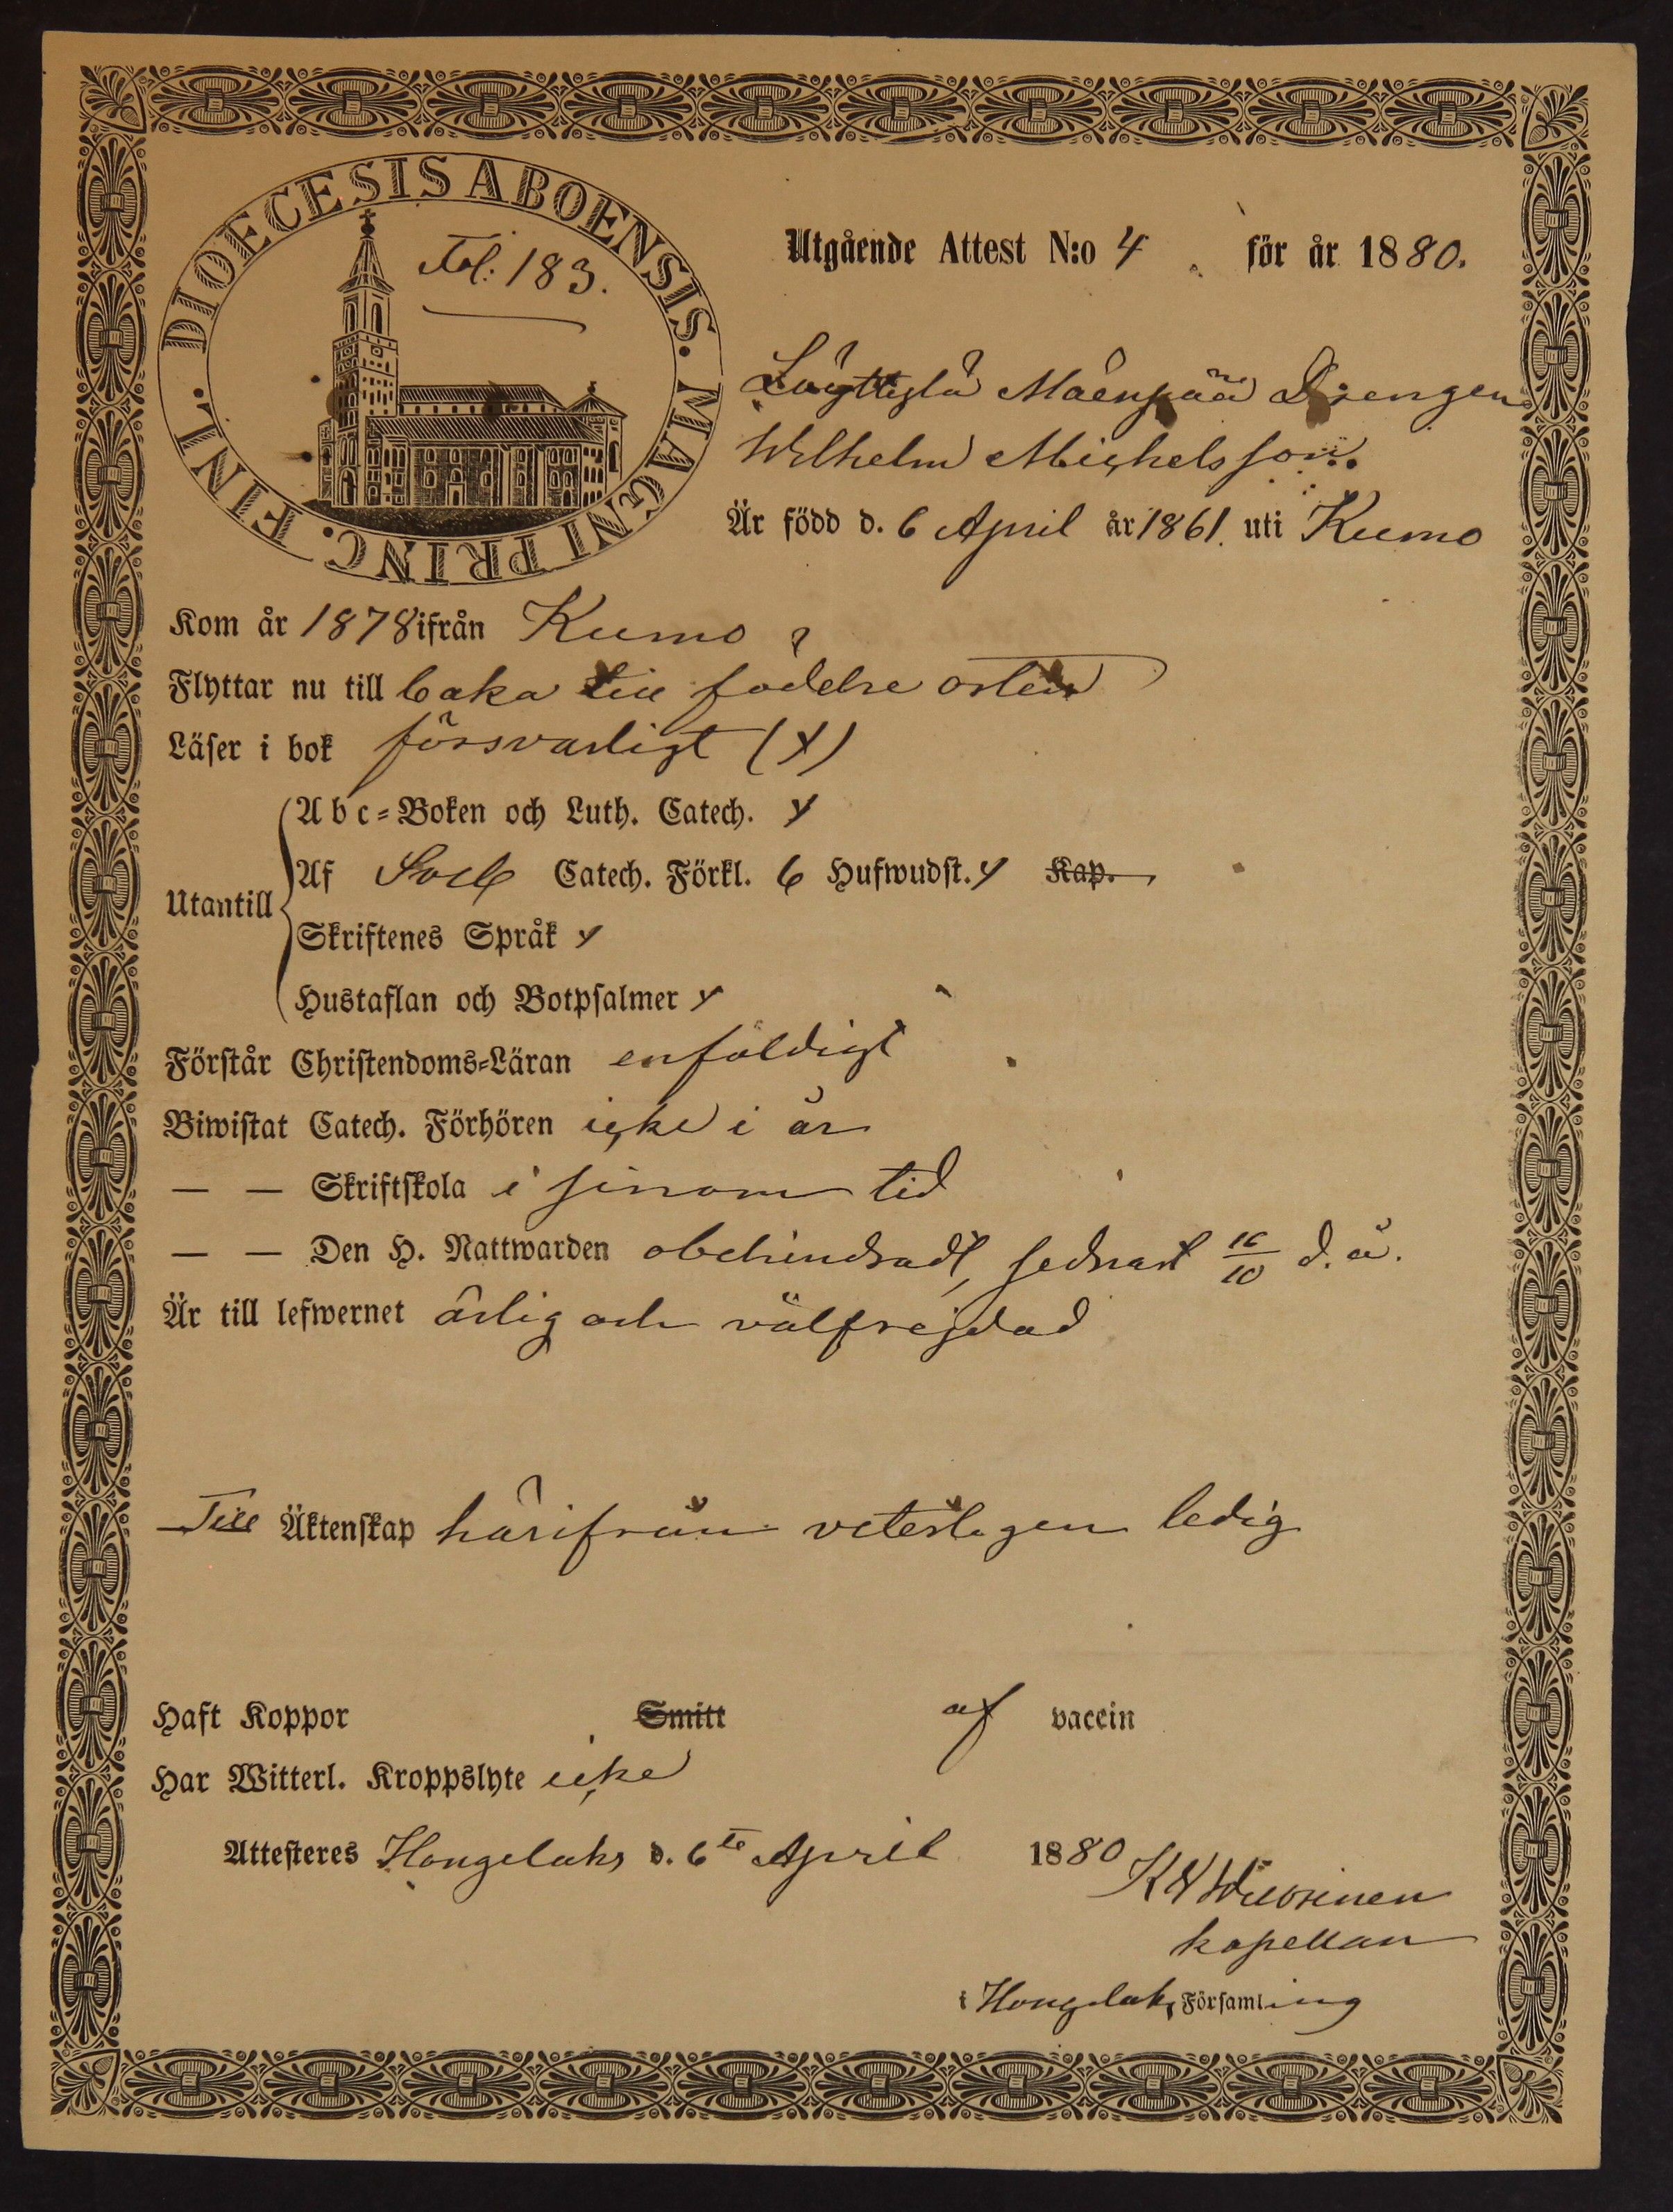 DIOECESIS ABOENSIS. MAGNI PRINC. FINL.
Fol: 183.
Utgående Attest N:o 4 för år 1880.
Mäenpää Drengen
Wilhelm Michelsson.
Är född d. 6 April år 1861. uti Kumo
Kom år 1878 ifrån Kumo
Flyttar nu till baka till födelse orten
Läser i bok försvarligt (x)
Utantill
Abc-Boken och Luth. Catech. x
Af Catech. Förkl. 6 Hufwudst. x Kap.
Skriftenes Språk x
Hustaflan och Botpsalmer x
Förstår Christendoms-Läran enfaldigt
Biwistat Catech. Förhören icke i år
— — Skriftskola i sinom tid
— — Den H. Nattwarden obehindradt, sednast 16/10 d. å.
Är till lefwernet ärlig och välfrejdad
Till Äktenskap härifrån veterligen ledig
Haft Koppor Smitt af vaccin
Har Witterl. Kroppslyte icke
Attesteres Hongelaks d. 6te April 1880
kapellan
i Hongelaks Församling